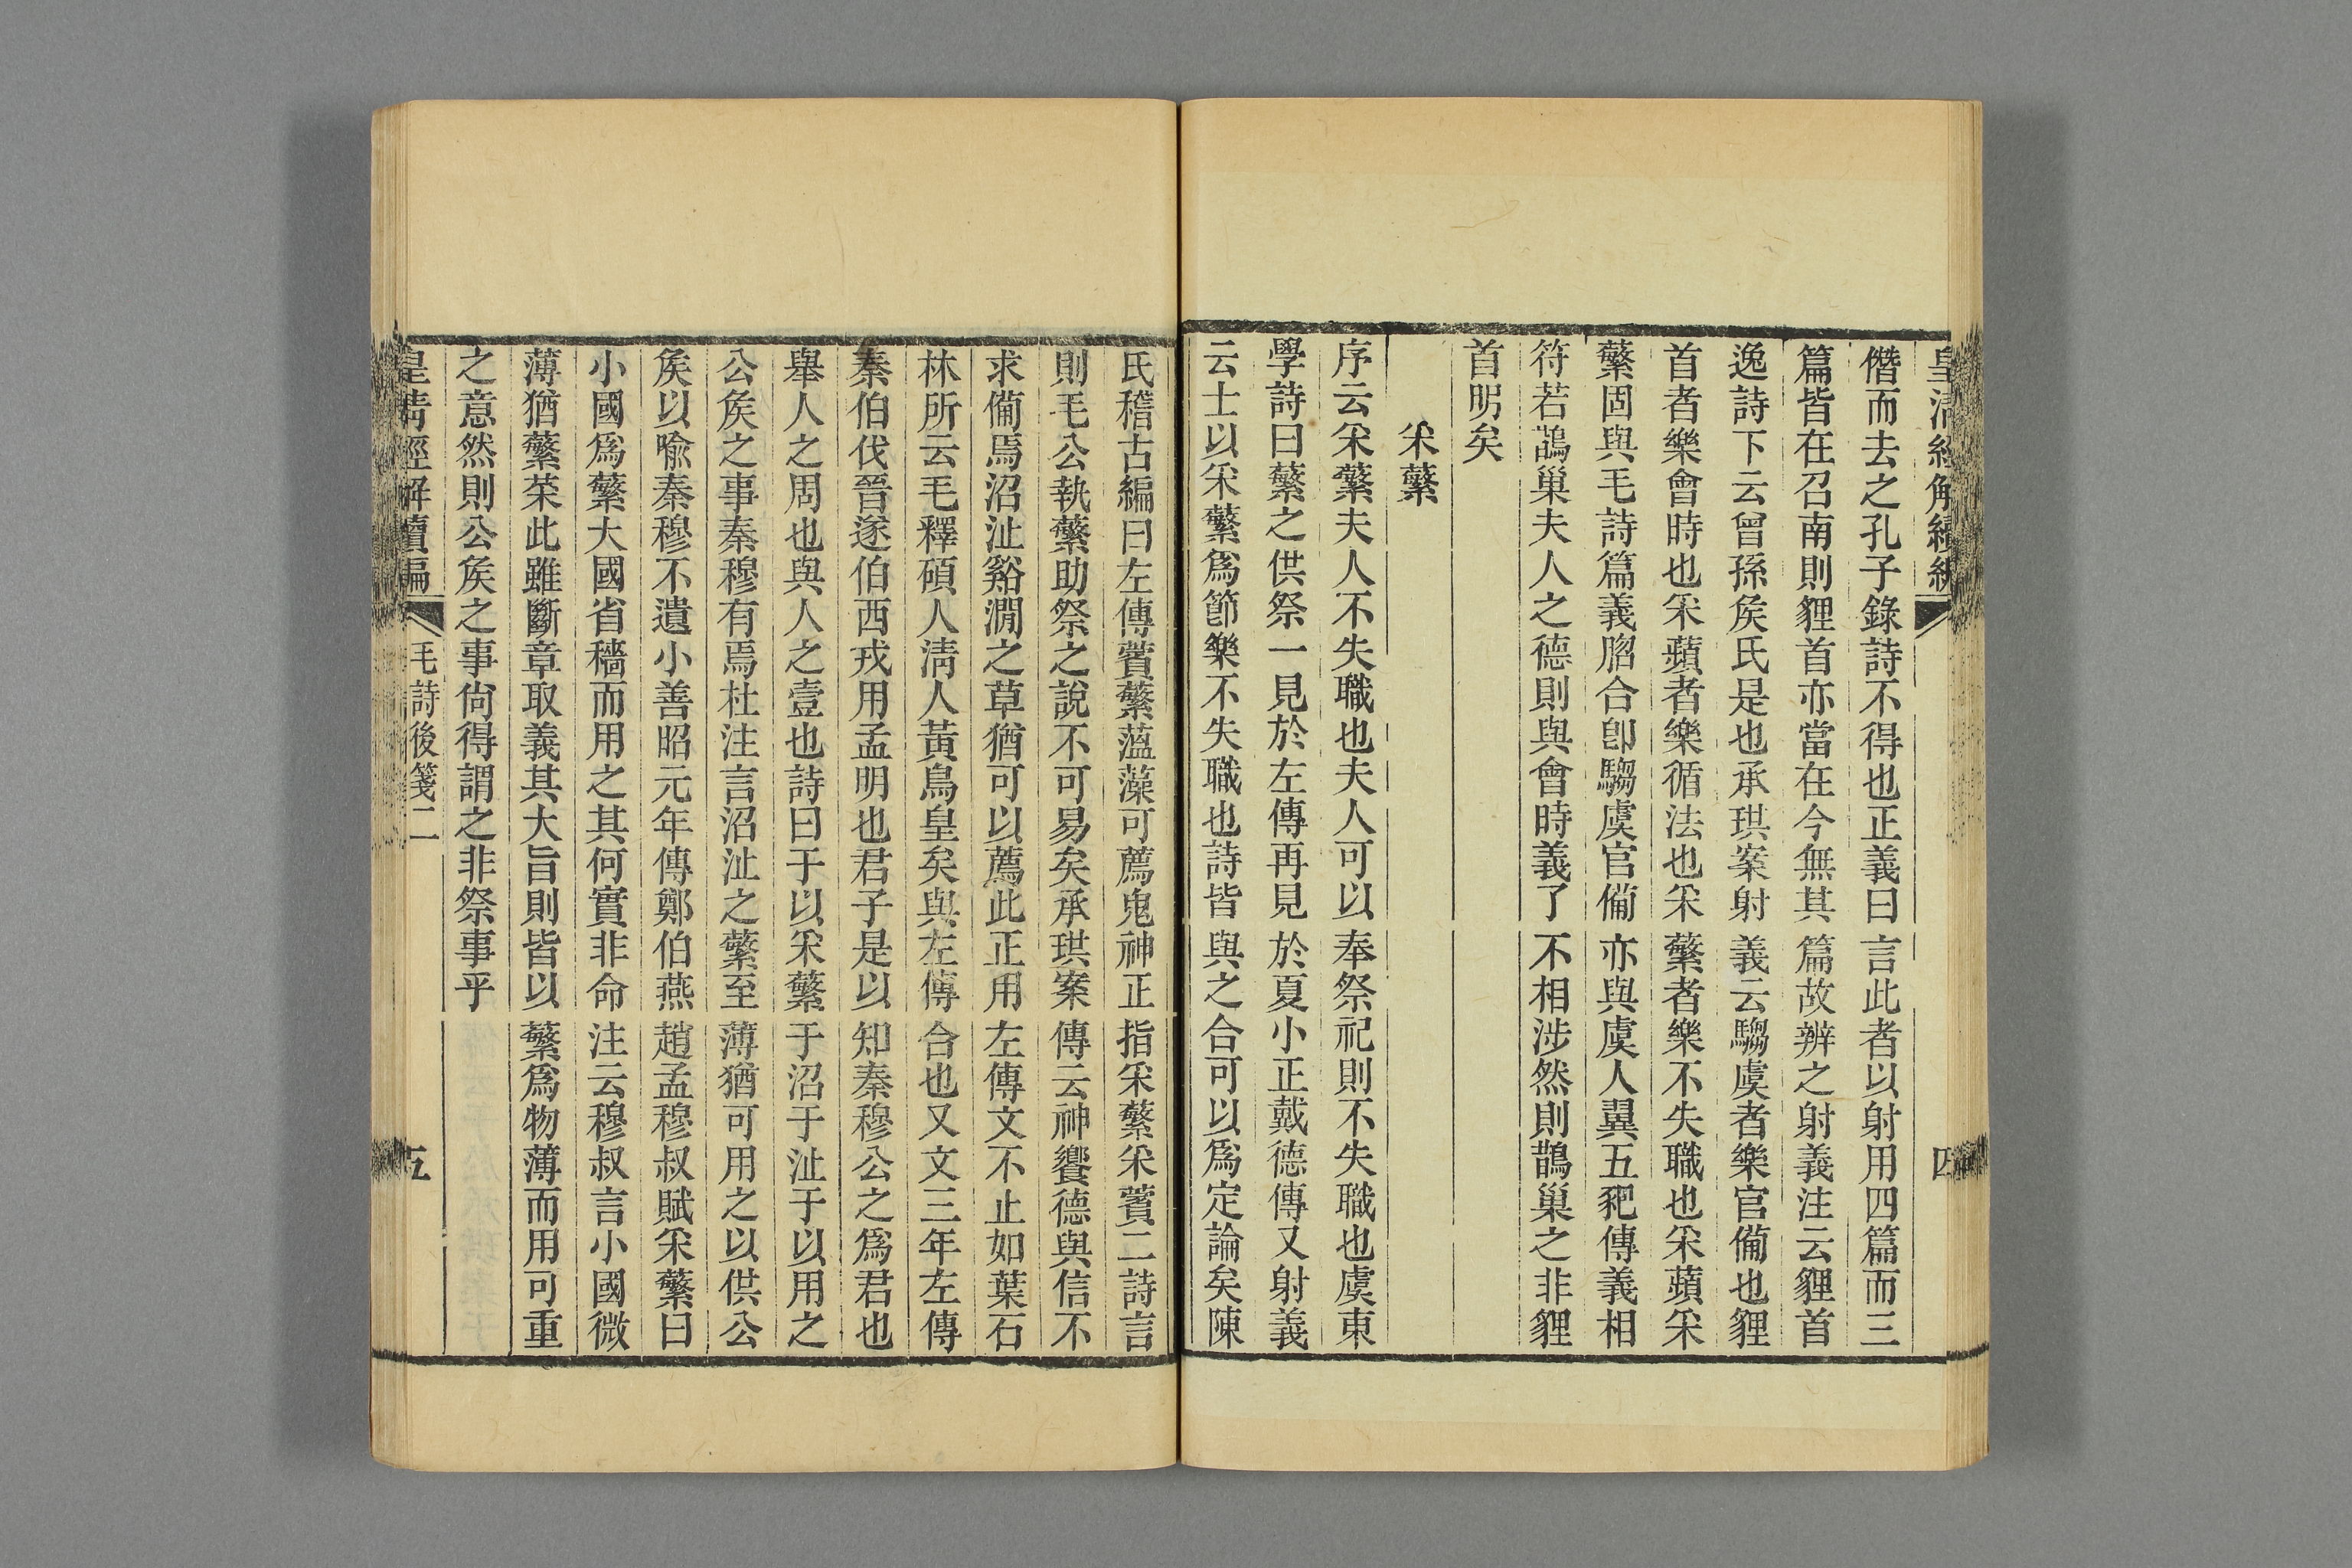 皇清經解續編
四
僭而去之孔子錄詩不得也正義曰言此者以射用四篇而三
篇皆在召南則貍首亦當在今無其篇故辨之射義注云貍首
逸詩下云曾孫矦氏是也承珙案射義云騶虞者樂官僃也貍
首者樂會時也采蘋者樂循法也采蘩者樂不失職也采蘋采
蘩固與毛詩篇義脗合卽騶虞官僃亦與虞人翼五豝傳義相
符若鵲巢夫人之德則與會時義了不相涉然則鵲巢之非貍
首明矣
采蘩
序云采蘩夫人不失職也夫人可以奉祭祀則不失職也虞東
學詩曰蘩之供祭一見於左傳再見於夏小正戴德傳又射義
云士以采蘩爲節樂不失職也詩皆與之合可以爲定論矣陳
氏稽古編曰左傳蘋蘩薀藻可薦鬼神正指采蘩采蘋二詩言
則毛公執蘩助祭之說不可易矣承珙案傳云神饗德與信不
求僃焉沼沚谿澗之草猶可以薦此正用左傳文不止如葉石
林所云毛釋碩人淸人黃鳥皇矣與左傳合也又文三年左傳
秦伯伐晉遂伯西戎用孟明也君子是以知秦穆公之爲君也
舉人之周也與人之壹也詩曰于以采蘩于沼于沚于以用之
公矦之事秦穆有焉杜注言沼沚之蘩至薄猶可用之以供公
矦以喩秦穆不遺小善昭元年傳鄭伯燕趙孟穆叔賦采蘩曰
小國爲蘩大國省穡而用之其何實非命注云穆叔言小國微
薄猶蘩菜此雖斷章取義其大旨則皆以蘩爲物薄而用可重
之意然則公矦之事尙得謂之非祭事乎
皇清經解續編
毛詩後箋二
五